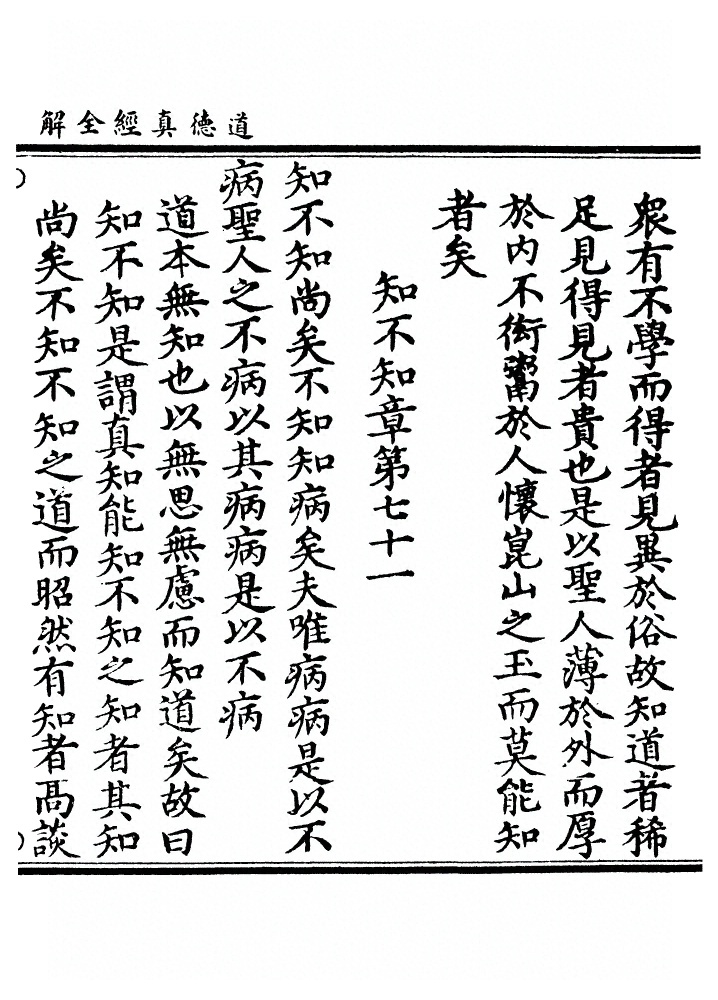 道德真經全解
衆有不學而得者見異於俗故知道者稀
足見得見者貴也是以聖人薄於外而厚
於内不衒鬻於人懷崑山之玉而莫能知
者矣
知不知章第七十一
知不知尚矣不知知病矣夫唯病病是以不
病聖人之不病以其病病是以不病
道本無知也以無思無慮而知道矣故曰
知不知是謂真知能知不知之知者其知
尚矣不知不知之道而昭然有知者髙談